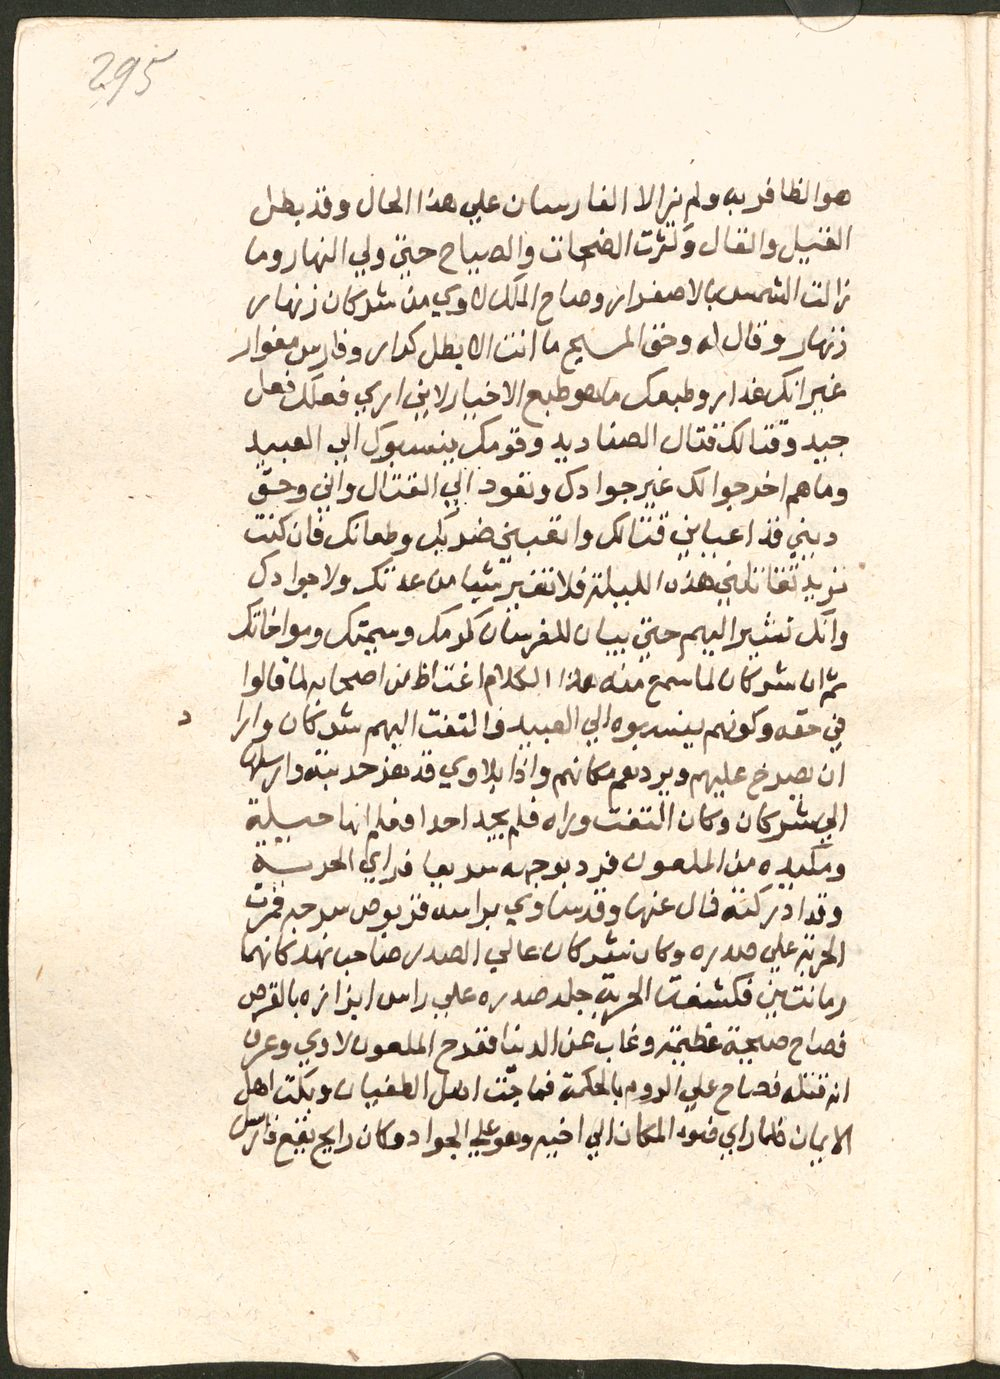 295
هو الظافر به ولم يزالا الفارسان علي هذا الحال وقد بطل
القتيل والقال وكثرت الضجات والصياح حتي ولي النهار وما
زالت الشمس بالاصفرار وصاح الملك لاوي من شركان زنهار
زنهار وقال له وحق المسيح ما انت الا بطل كرار وفارس مغوار
غير انك غدار وطبعك ما هو طبع الاخيار لاني اري فعلك فعل
جيد وقتالك قتال الصناديد وقومك ينسبوك الي العبيد
وما هم اخرجوا لك غير جوادك وتعود الي القتال واني وحق
ديني قد اعياني قتالك واتعبني ضربك وطعانك فان كنت
تريد تقاتلني هذه الليلة فلا تغير شيا من عدتك ولا جوادك
وانك تشير اليهم حتي يبان للفرسان كرمك وسمتك ومواخاتك
ثم ان شركان لما سمع منه هذا الكلام اغتاظ من اصحابه لما قالوا
في حقه وكونهم ينسبوه الي العبيد فالتفت اليهم شركان وارا
د
ان يصرخ عليهم ويردهم مكانهم واذا بلاوي قد هز حربته وارسلها
الي شركان وكان التفت وراه فلم يجد احدا فعلم انها حيلة
ومكيده من الملعون فرد بوجهه سريعا فراي الحربة
وقد ادركته فمال عنها وقد ساوي براسه قربوص سرجه فمرت
الحربة علي صدره وكان شركان عالي الصدر صاحب نهد كانهما
رمانتين فكشفت الحربة جلد صدره علي راس ابزازه بالقرص
فصاح صيحة عظيمة وغاب عن الدنيا ففرح الملعون لاوي وعرف
انه قتله فصاح علي الروم بالحكمة فماجت اهل الطغيان وبكت اهل
الايمان فلما راي ضوء المكان الي اخيه وهو علي الجواد وكان رايح يقع فارسل